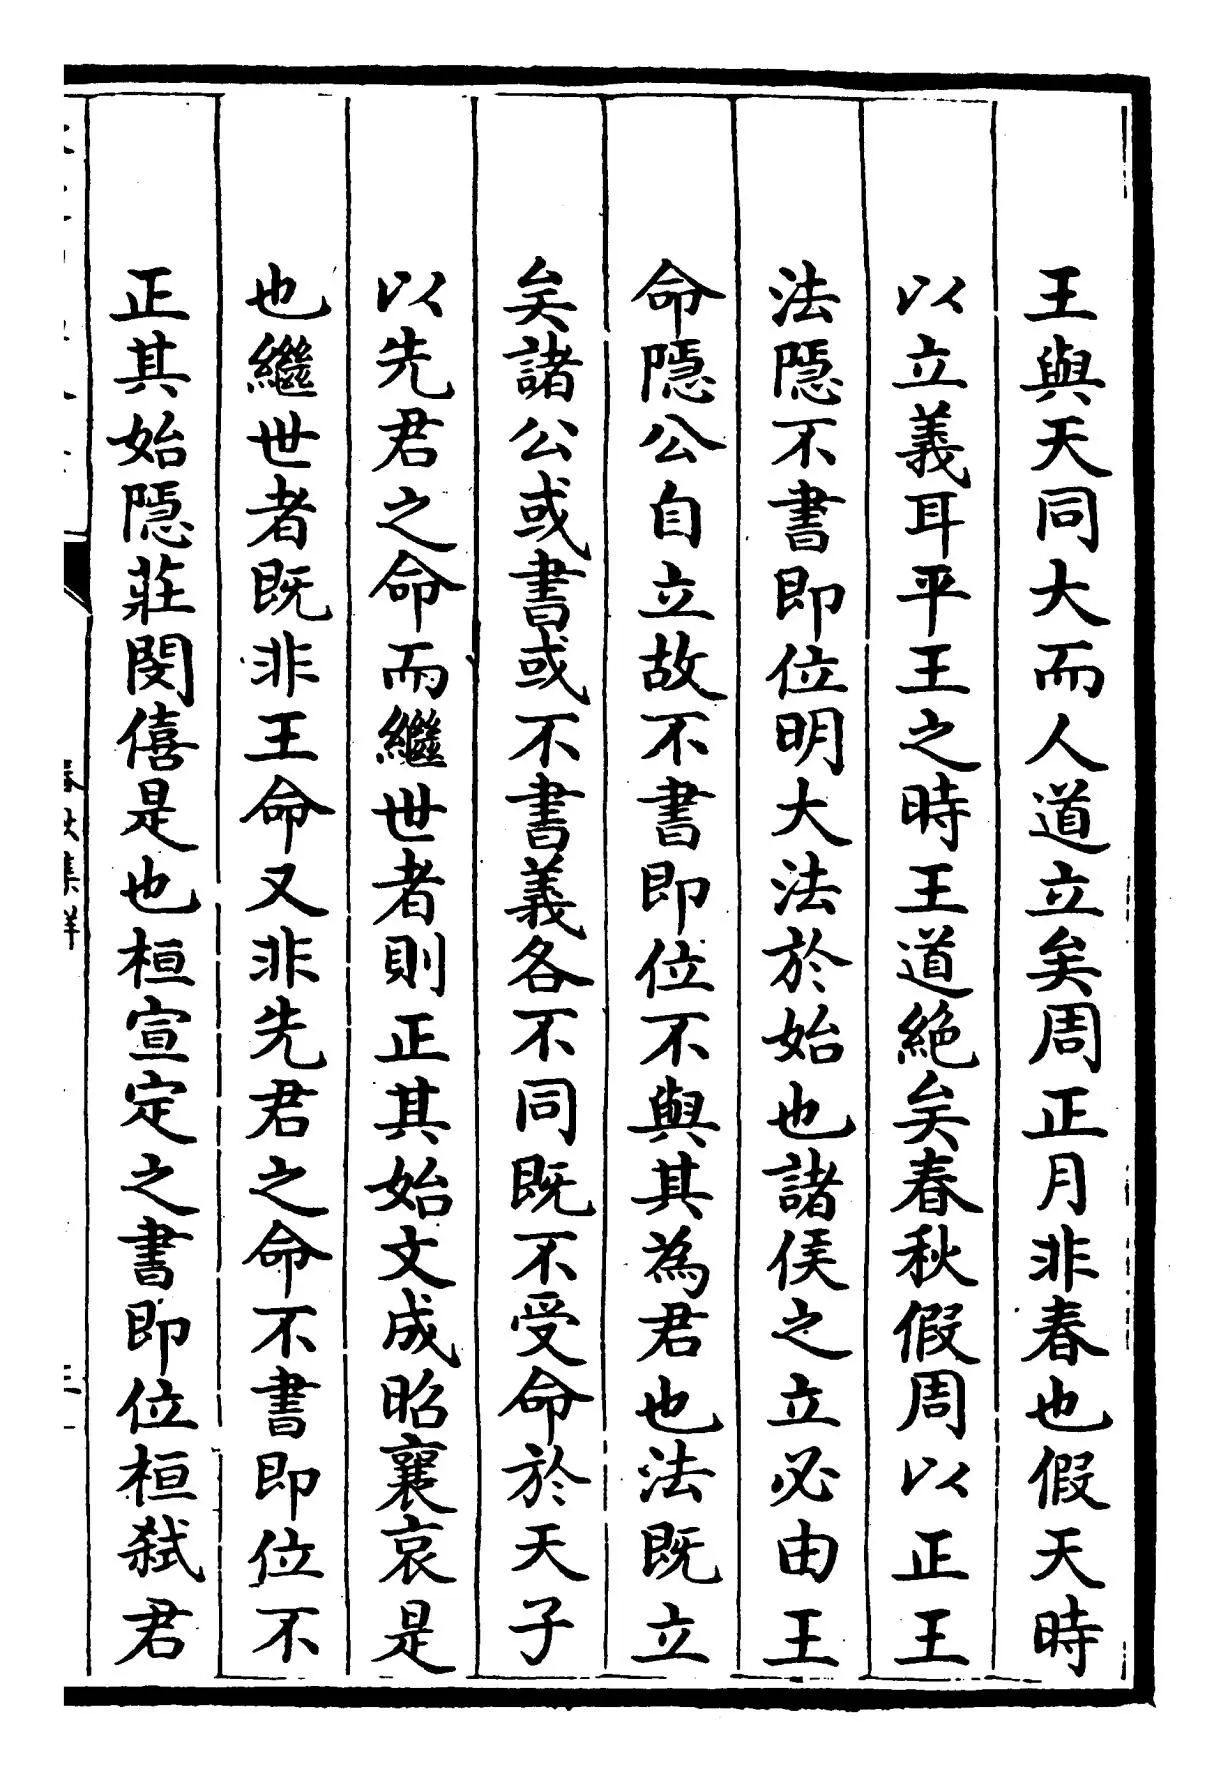 王與天同大而人道立矣周正月非春也假天時
以立義耳平王之時王道絶矣春秋假周以正王
法隱不書即位明大法於始也諸侯之立必由王
命隱公自立故不書即位不與其為君也法既立
矣諸公或書或不書義各不同既不受命於天子
以先君之命而繼世者則正其始文成昭襄哀是
也繼世者既非王命又非先君之命不書即位不
正其始隱莊閔僖是也桓宣定之書即位桓弑君